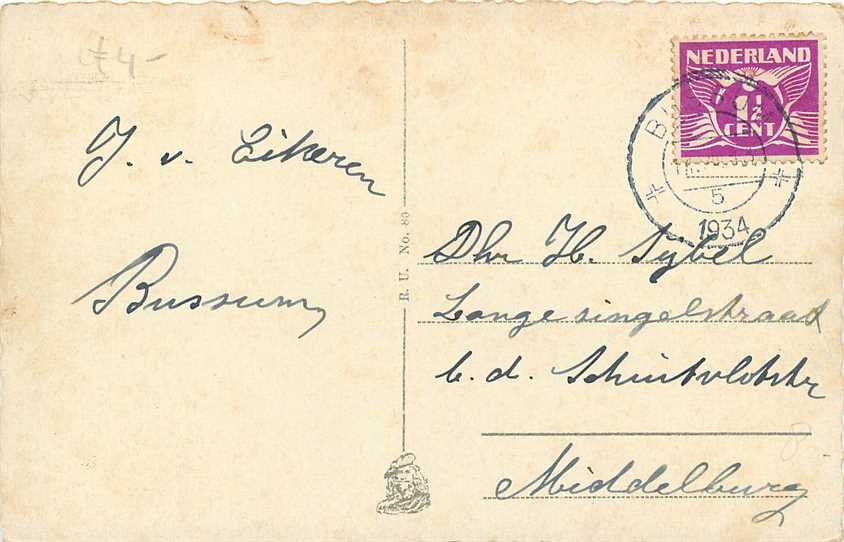 £ 4-
J. v. Eikeren
Bussum
R. U. No. 80
NEDERLAND
1½
CENT
5
1934
Dhr H. Sybel
Lange singelstraat
b. d.
Middelburg